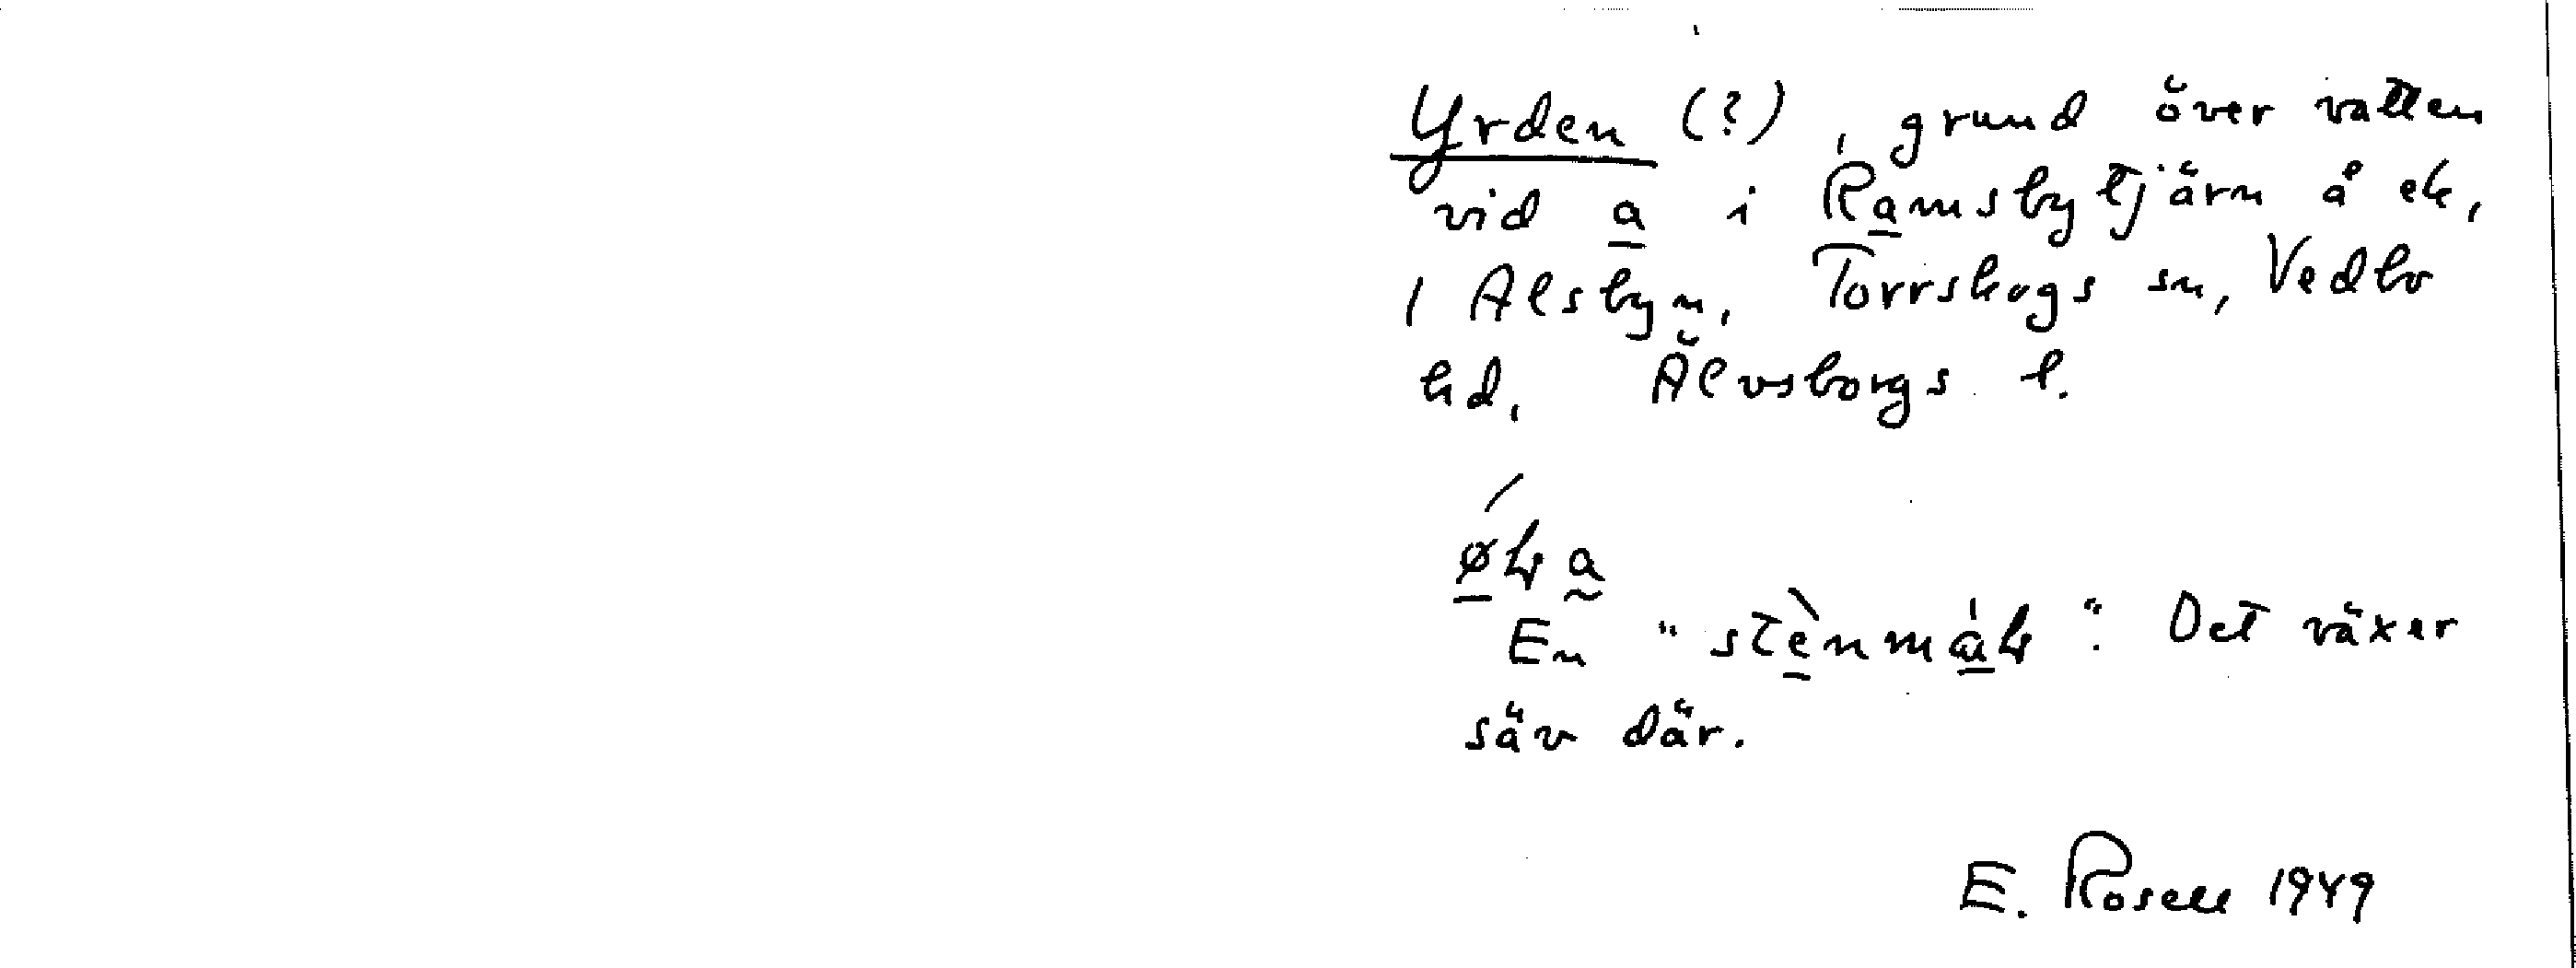 Yrden (?), grund över vatten
vid a i Ramsbytjärn å ek,
i Alsbyn, Torrskogs sn, Vedbo
hd, Älvsborgs l.
En "stènmáɫ". Det växer
säv där.
E. Rosell 1949